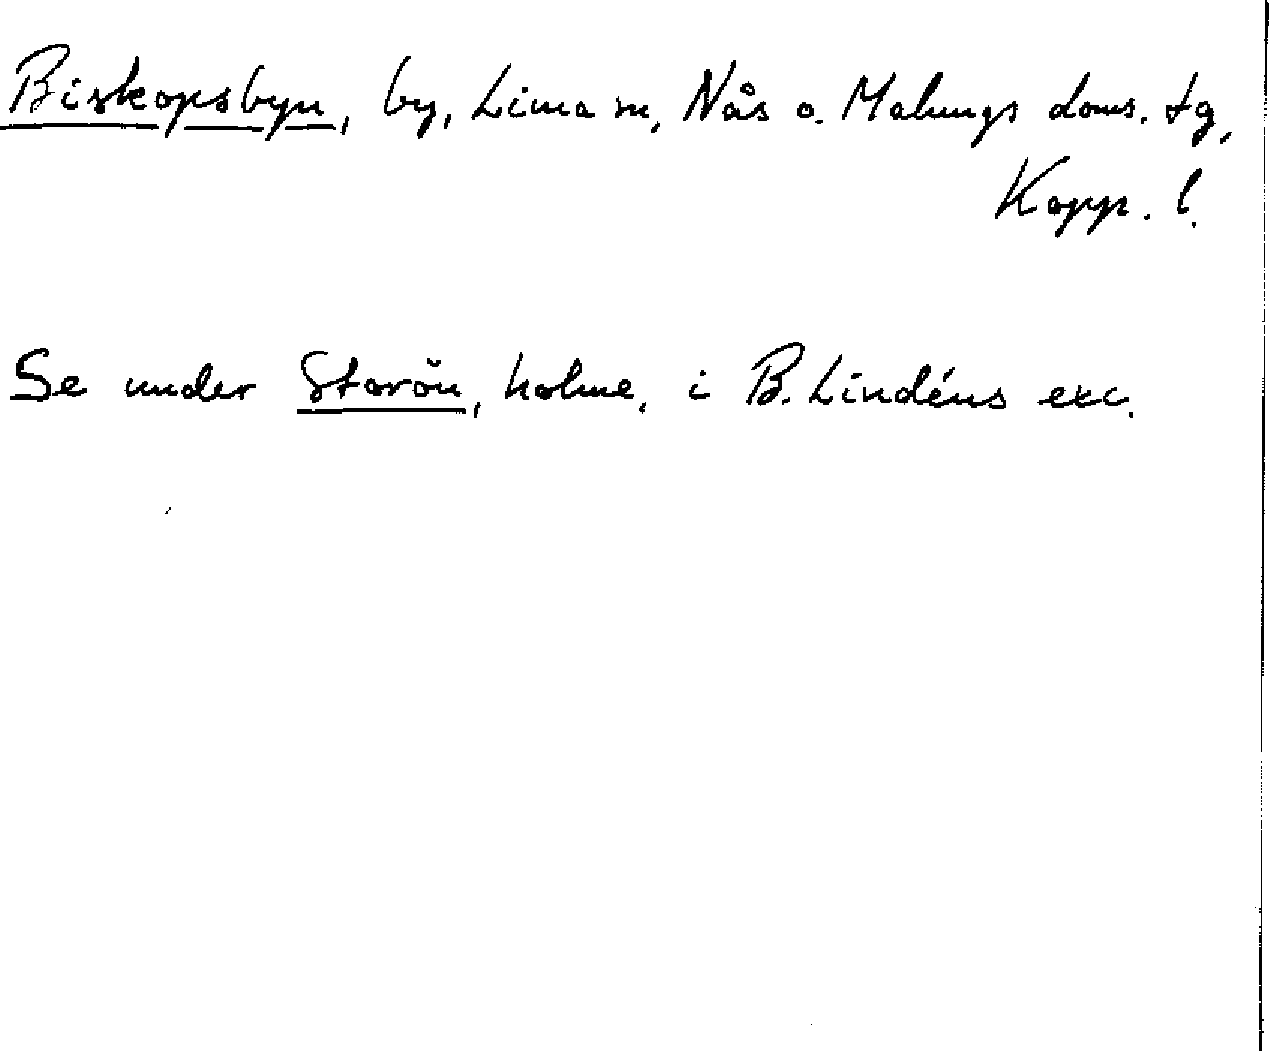 Biskopsbyn, by, Lima sn, Nås o. Malungs doms. tg,
Kopp. l.
Se under Storön, holme, i B. Lindéns exc.